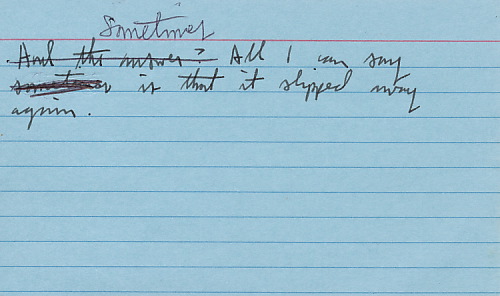 Sometimes
And the answer? All I can say
sometimes is that it slipped away
again.